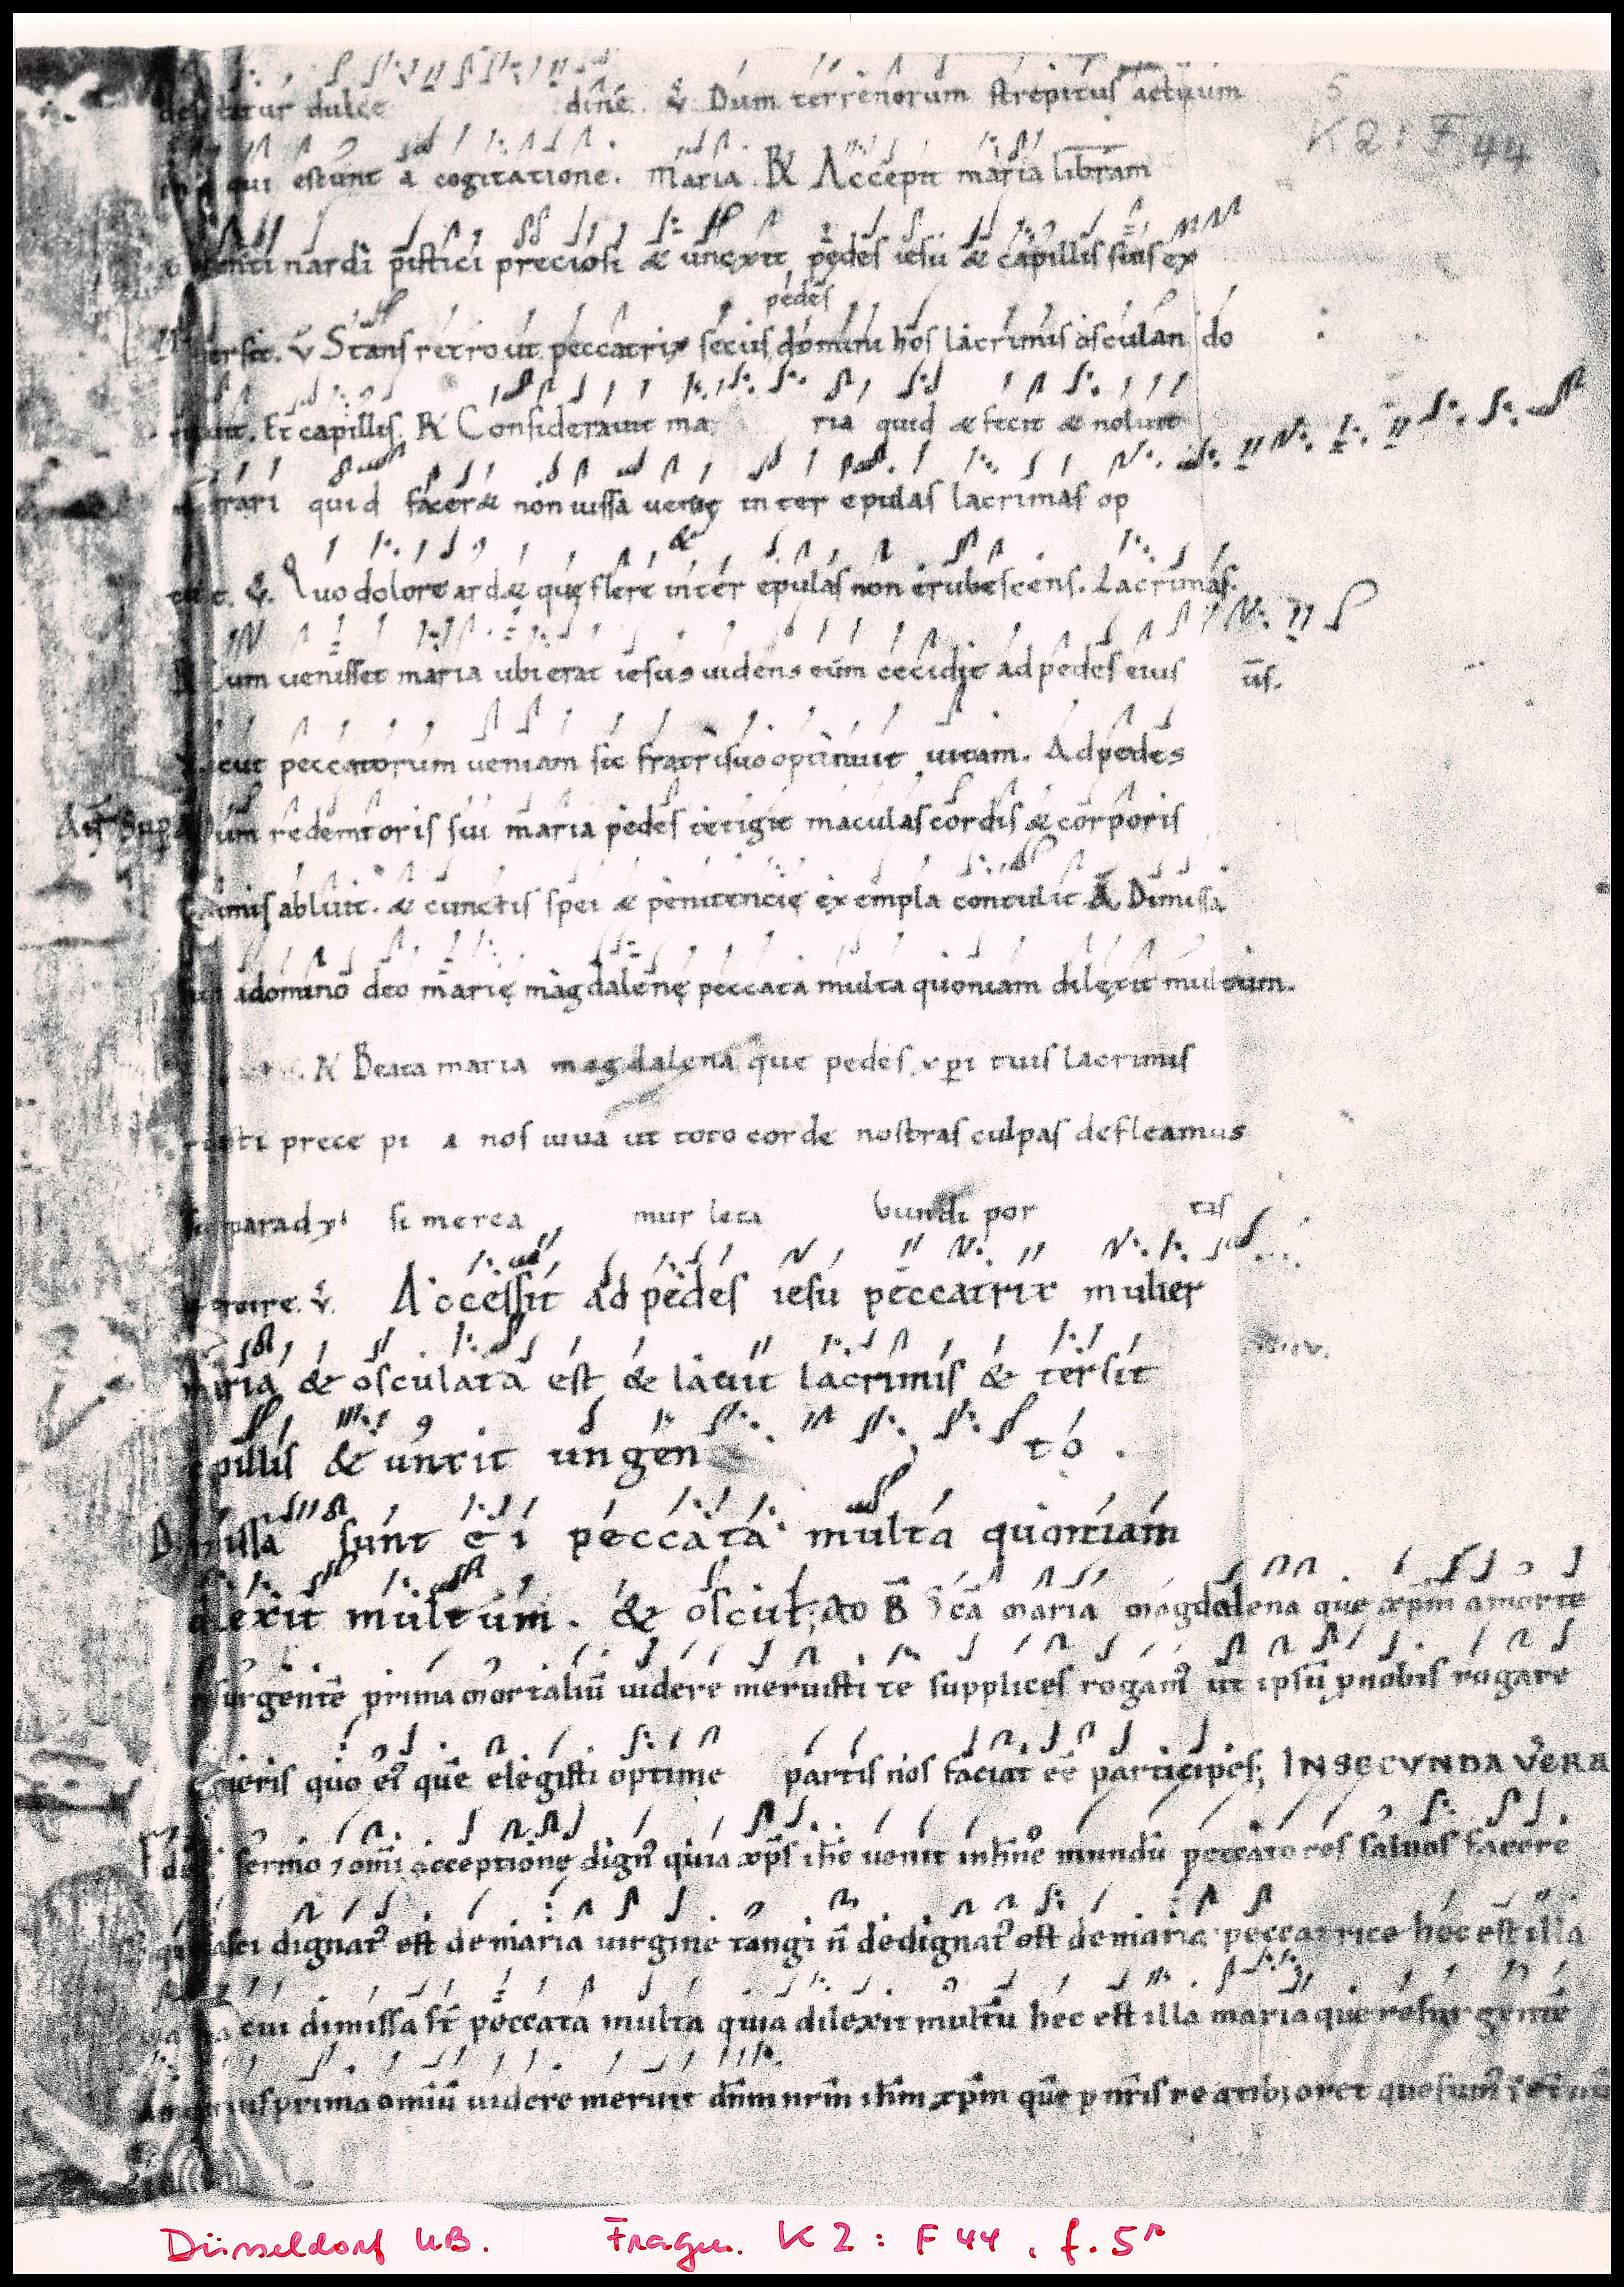 tatur dulce dine. V Dum terrenorum strepitus actuum
5
K 2 : F 44
qui escunt a cogitatione. Maria. R Accepit maria libram
nardi pistici preciosi & unexit pedes iesu & capillis suis ex
pedes
tersit. V Stans retro ut peccatrix secus domini hos lacrimis osculan do
Et capillis. R Considerauit ma ria quid & fecit & noluit
rari quid facer& non iussa uenit inter epulas lacrimas op
V. Quo dolore ard& que flere inter epulas non erubescens. Lacrimas.
Cum uenisset maria ubi erat iesus uidens eum cecidit ad pedes eius us.
peccatorum ueniam sic fratri suo optinuit uitam. Ad pedes
um redemtoris sui maria pedes tetigit maculas cordis & corporis
abluit. & cunctis spei & penitencie exempla contulit A Dimissa
adomino deo marie magdalene peccata multa quoniam dilexit multum.
R Beata maria magdalena que pedes xpi tuis lacrimis
prece pi a nos iuua ut toto corde nostras culpas defleamus
parady si merea mur leta bundi por tas
V. Accessit ad pedes iesu peccatrix mulier
maria & osculata est & lauit lacrimis & tersit
pillis & unxit ungen to.
Dimissa sunt ei peccata multa quoniam
dilexit multum. & oscul; ao B ca maria magdalena que xpm amorte
surgente prima mortaliu uidere meruisti te supplices rogam' ut ipsu pnobis rogare
quo ei' que elegisti optime partis nos faciat ee participes; IN SECVNDA VERA
sermo 7 omi acceptione dign' quia xps ihc uenit inhunc mundu peccatores saluos facere
nasci dignat' est de maria uirgine tangi n dedignat' est de maria peccatrice hec est illa
cui dimissa st peccata multa quia dilexit multu hec est illa maria que resurgente
prima omiu uidere meruit dnm nrm ihm xpm que p nris reatib; oret quesum'
Düsseldorf UB. Fragm. K 2 : F 44, f. 5r